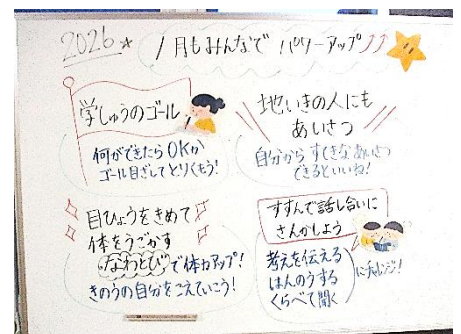 2026★ 1月もみんなで パワーアップ⤴⤴
学しゅうのゴール
何ができたらOKか
ゴール目ざしてとりくもう!
地いきの人にも
あいさつ
自分から すてきなあいさつ
できるといいね!
目ひょうをきめて
体をうごかす
なわとびで体力アップ!
きのうの自分をこえていこう!
すすんで話し合いに
さんかしよう
考えを伝える
はんのうする
くらべて聞く
にチャレンジ!